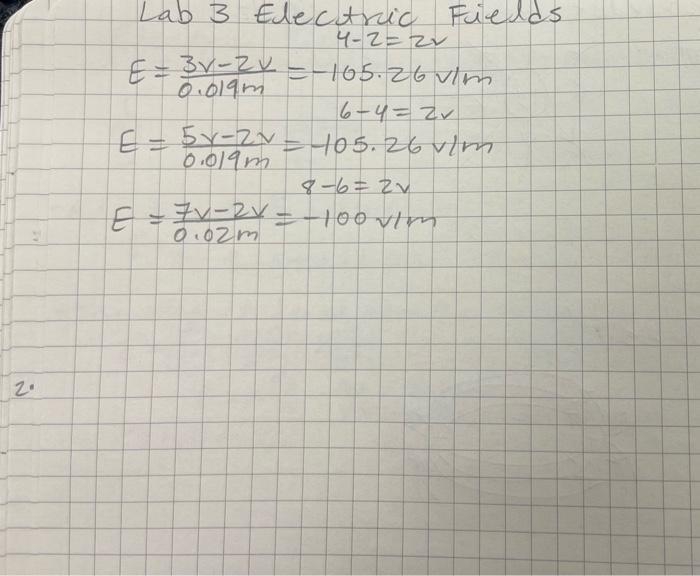 Lab 3 Electric Fields
4-2=2v
E = 3v-2v / 0.019m = -105.26 v/m
6-4=2v
E = 5v-2v / 0.019m = -105.26 v/m
8-6=2v
E = 7v-2v / 0.02m = -100 v/m
2.